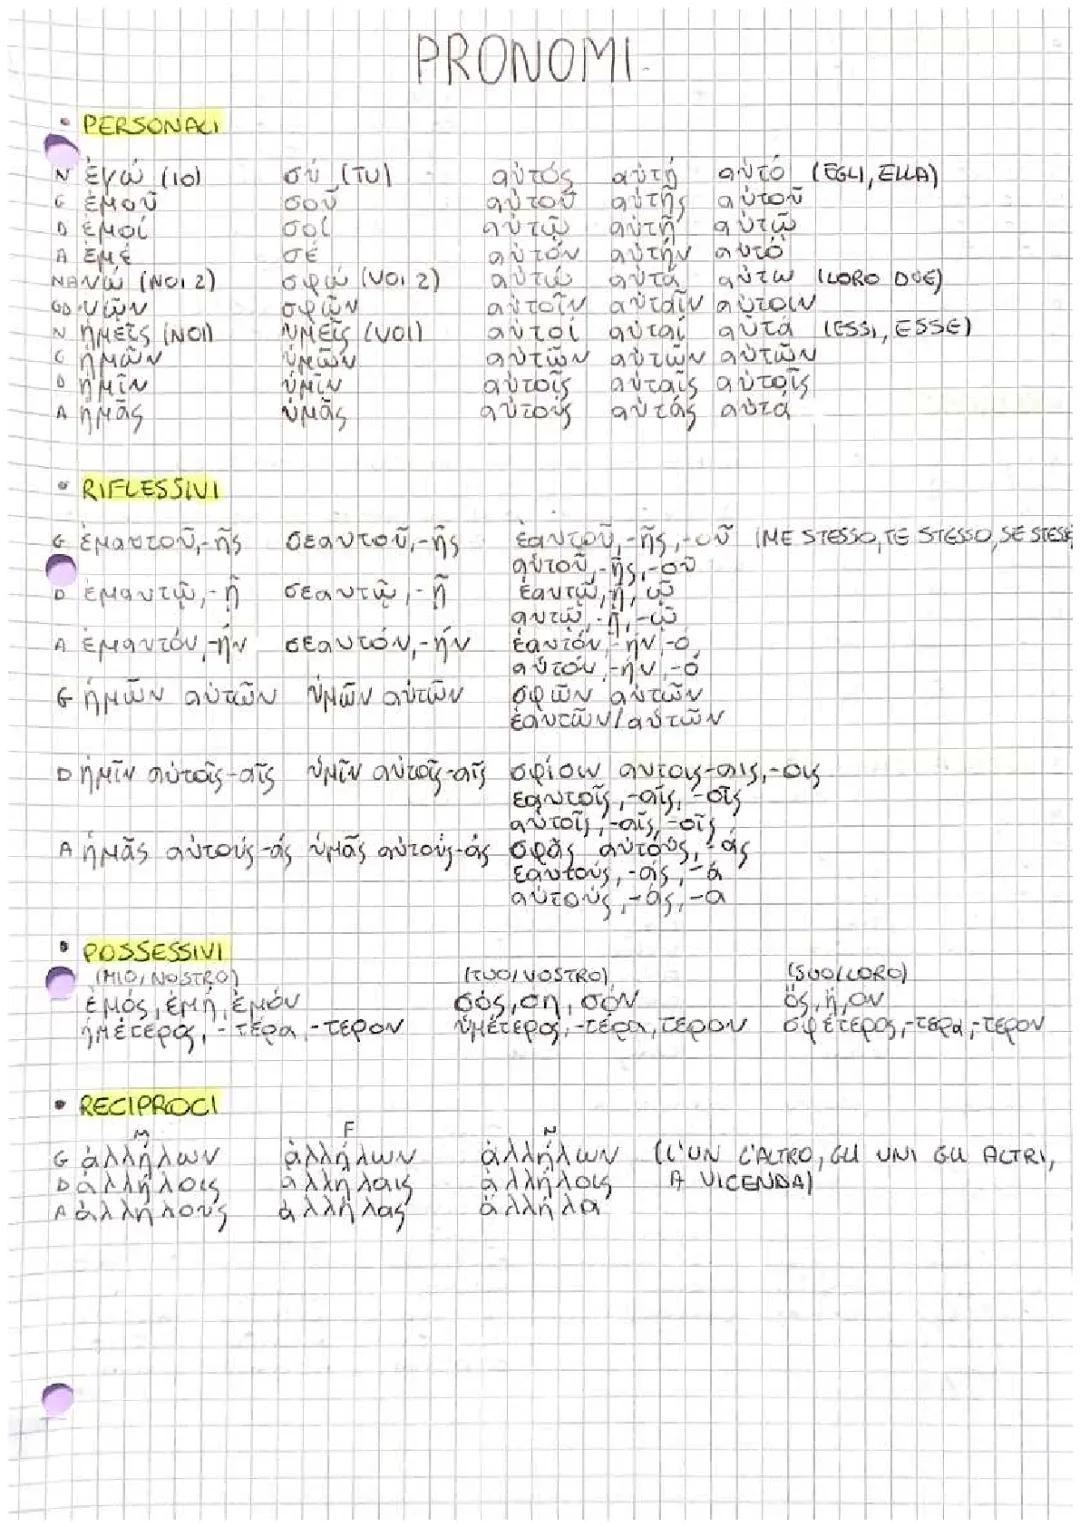 PRONOMI
• PERSONALI
N ἐγώ (IO) σύ (TU) αὐτός αὐτή αὐτό (EGLI, ELLA)
G ἐμοῦ σοῦ αὐτοῦ αὐτῆς αὐτοῦ
D ἐμοί σοί αὐτῷ αὐτῇ αὐτῷ
A ἐμέ σέ αὐτόν αὐτήν αὐτό
NA νώ (NOI 2) σφώ (VOI 2) αὐτώ αὐτά αὐτώ (LORO DUE)
GD νῷν σφῷν αὐτοῖν αὐταῖν αὐτοιν
N ἡμεῖς (NOI) ὑμεῖς (VOI) αὐτοί αὐταί αὐτά (ESSI, ESSE)
G ἡμῶν ὑμῶν αὐτῶν αὐτῶν αὐτῶν
D ἡμῖν ὑμῖν αὐτοῖς αὐταῖς αὐτοῖς
A ἡμᾶς ὑμᾶς αὐτούς αὐτάς αὐτά
• RIFLESSIVI
G ἐμαυτοῦ,-ῆς σεαυτοῦ,-ῆς ἑαυτοῦ,-ῆς,-οῦ (ME STESSO, TE STESSO, SE STESS
αὑτοῦ,-ῆς,-οῦ
D ἐμαυτῷ,-ῇ σεαυτῷ,-ῇ ἑαυτῷ,ῇ,ῷ
αυτῷ,-ῇ,-ῷ
A ἐμαυτόν,-ήν σεαυτόν,-ήν ἑαυτόν,-ήν,-ό,
αὑτόν,-ήν,-ό
G ἡμῶν αὐτῶν ὑμῶν αὐτῶν σφῶν αὐτῶν
ἑαυτῶν/αὑτῶν
D ἡμῖν αὐτοῖς-αῖς ὑμῖν αὐτοῖς-αῖς σφίσιν αυτοις-αις,-οις
εαυτοῖς,-αῖς,-οῖς
αὑτοῖς,-αῖς,-οῖς
A ἡμᾶς αὐτούς-άς ὑμᾶς αὐτούς-άς σφᾶς αὐτούς,-άς
ἑαυτούς,-άς,-ά
αὑτούς,-άς,-α
• POSSESSIVI
(MIO, NOSTRO) (TUO/VOSTRO) (SUO/LORO)
ἐμός, ἐμή, ἐμόν σός, σή, σόν ὅς, ἥ, ὅν
ἡμέτερος, -τέρα, -τερον ὑμέτερος,-τέρα, τερον σφέτερος,-τερα,-τερον
• RECIPROCI
M F N
G ἀλλήλων ἀλλήλων ἀλλήλων (L'UN L'ALTRO, GLI UNI GLI ALTRI,
D ἀλλήλοις ἀλλήλαις ἀλλήλοις A VICENDA)
A ἀλλήλους ἀλλήλας ἄλληλα